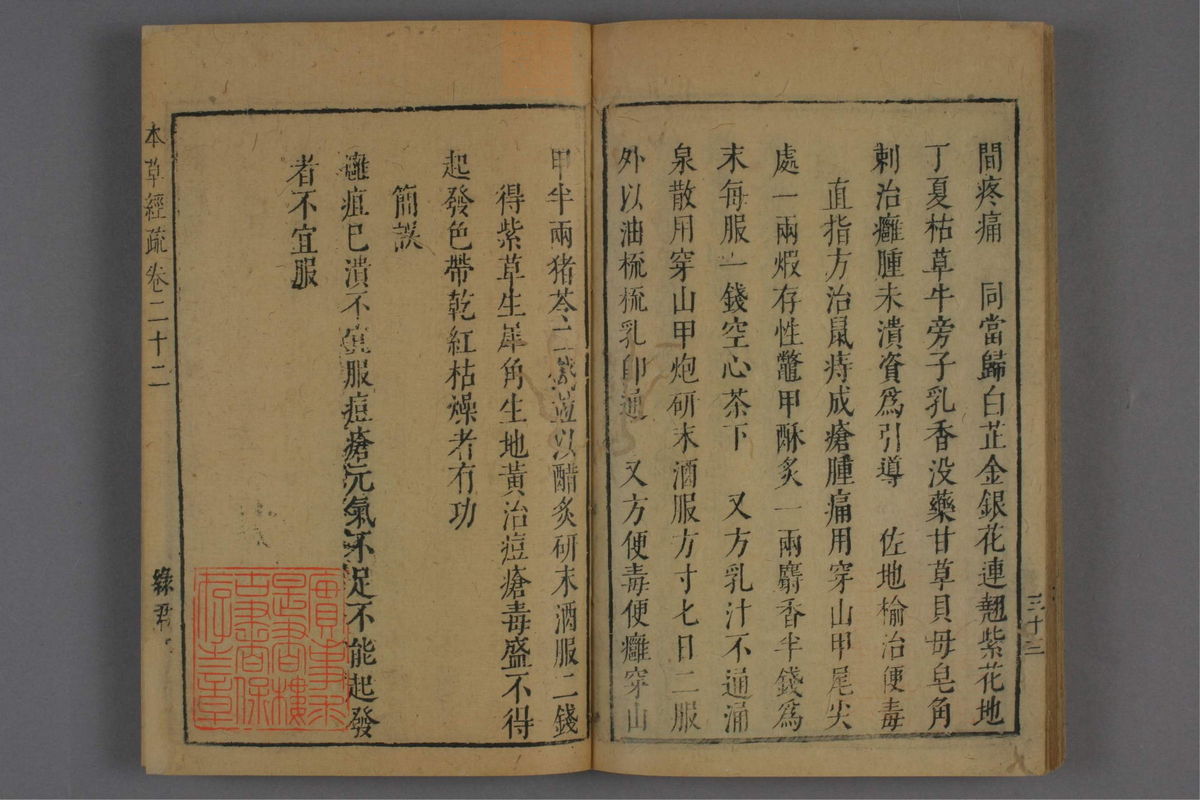 間疼痛　同當歸白芷金銀花連翹紫花地
丁夏枯草牛旁子乳香没藥甘草貝母皂角
刺治癰腫未潰資爲引導　佐地榆治便毒
直指方治鼠痔成瘡腫痛用穿山甲尾尖
處一兩煅存性鼈甲酥炙一兩麝香半錢爲
末每服一錢空心茶下　又方乳汁不通涌
泉散用穿山甲炮研末酒服方寸匕日二服
外以油梳梳乳即通　又方便毒便癰穿山
三十三
甲半兩猪苓二錢並以醋炙研末酒服二錢
得紫草生犀角生地黃治痘瘡毒盛不得
起發色帶乾紅枯燥者有功
簡誤
癰疽已潰不宜服痘瘡元氣不足不能起發
者不宜服
本草經疏卷二十二
綠君